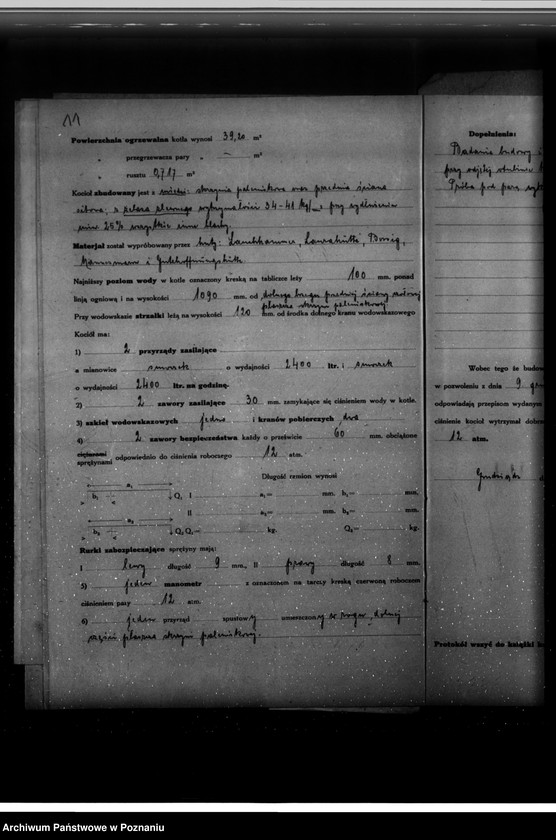 11
Powierzchnia ogrzewalna kotła wynosi 39,20 m²
„ przegrzewacza pary „ – m²
„ rusztu 0,717 m²
Kocioł zbudowany jest z skrzynia palnikowa oraz przednia ściana
sitowa; z wytrzymałości 34-41 kg/ przy wydłużeniu
25% wszystkie inne blachy.
Materjał został wypróbowany przez huty: Lauchhammer, Laurahütte, Borsig,
Mannesmann i Gutehoffnungshütte
Najniższy poziom wody w kotle oznaczony kreską na tabliczce leży 100 mm. ponad
linją ogniową i na wysokości 1090 mm. od dolnego brzegu przedniej ściany
płaszcza skrzyni palnikowej
Przy wodowskazie strzałki leżą na wysokości 120 mm. od środka dolnego kranu wodowskazowego
Kocioł ma:
1) 2 przyrządy zasilające
a mianowicie smoczek o wydajności 2400 ltr. i smoczek
o wydajności 2400 ltr. na godzinę.
2) 2 zawory zasilające 30 mm. zamykające się ciśnieniem wody w kotle.
3) szkieł wodowskazowych jedno i kranów pobierczych dwa
4) 2 zawory bezpieczeństwa każdy o prześwicie 60 mm. obciążone
ciężarami
sprężynami odpowiednio do ciśnienia roboczego 12 atm.
Długość ramion wynosi
a₁
b₁ Q₁ I a₁= mm. b₁= mm.
II a₂= mm. b₂= mm.
a₂
b₂ Q₂ Q₁= kg. Q₂= kg.
Rurki zabezpieczające sprężyny mają:
I lewy długość 9 mm., II prawy długość 8 mm.
5) jeden manometr z oznaczonem na tarczy kreską czerwoną roboczem
ciśnieniem pary 12 atm.
6) jeden przyrząd spustowy umieszczony w rogu dolnej
części płaszcza skrzyni palnikowej.
Dopełnienia:
Badanie budowy
przy
Próba pod parą
Wobec tego że budow
w pozwoleniu z dnia 9
odpowiadają przepisom wydanym
ciśnienie kocioł wytrzymał dobrze
12 atm.
Grudziądz d
Protokół wszyć do książki
Archiwum Państwowe w Poznaniu